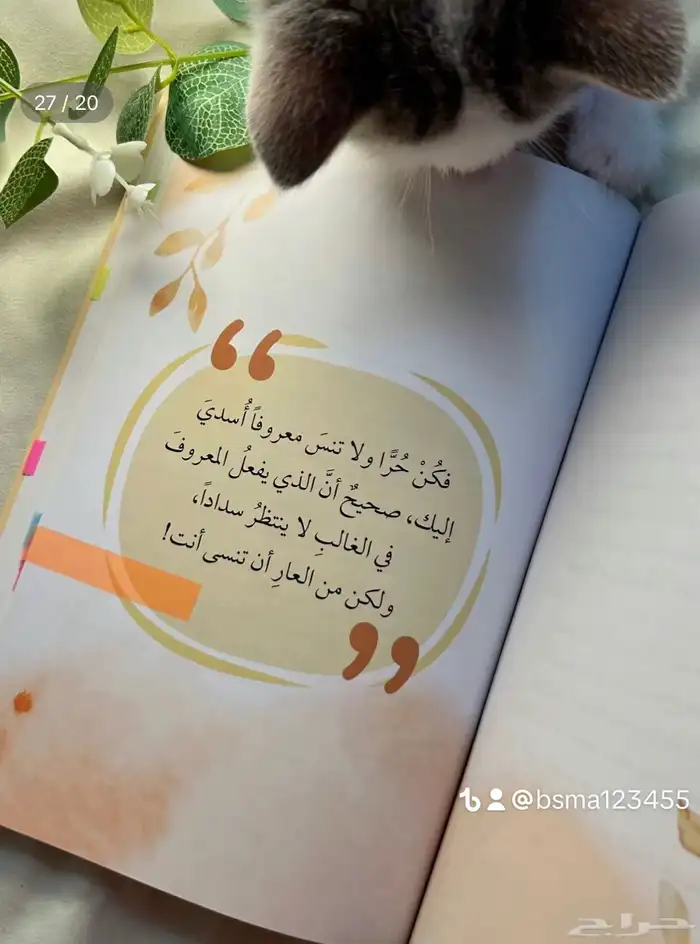 27 / 20
فكُنْ حُرًّا ولا تنسَ معروفاً أُسديَ
إليك، صحيحٌ أنَّ الذي يفعلُ المعروفَ
في الغالبِ لا ينتظرُ سداداً،
ولكن من العارِ أن تنسى أنت!
@bsma123455
حراج